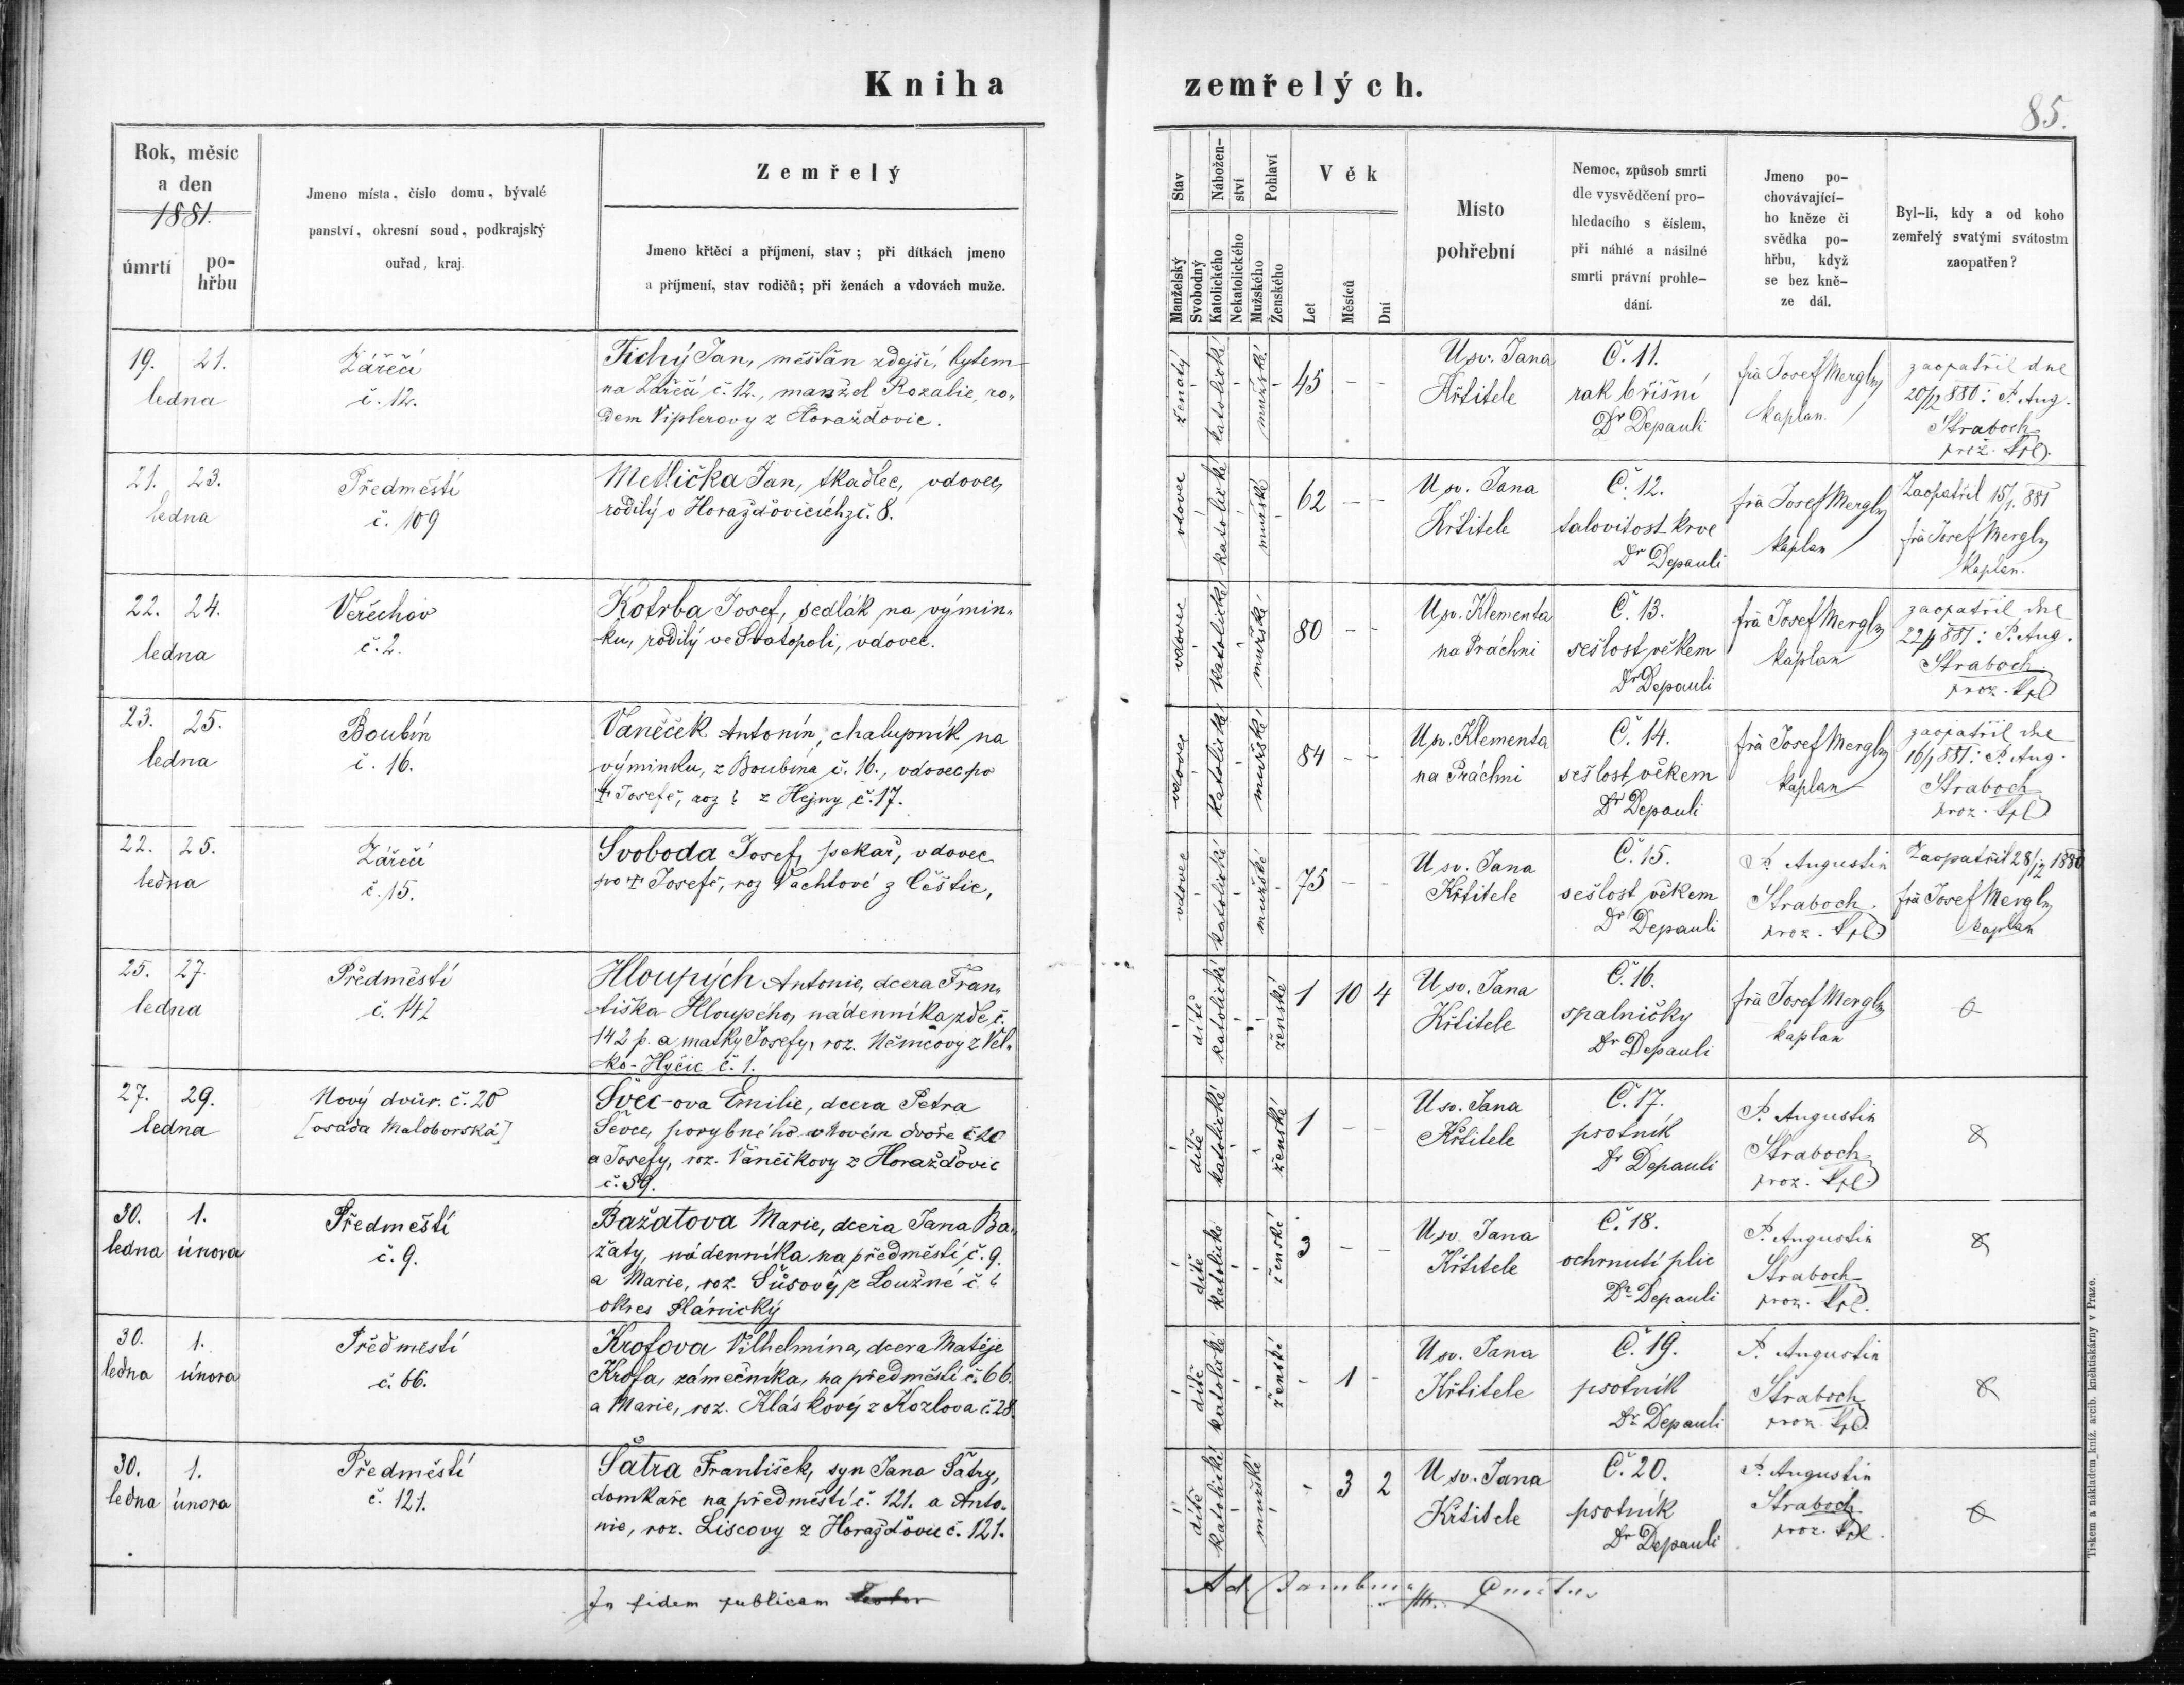 Kniha zemřelých.
85.
Rok, měsíc
a den
1881.
úmrtí
po-
hřbu
Jmeno místa, číslo domu, bývalé
panství, okresní soud, podkrajský
ouřad, kraj.
Zemřelý
Jmeno křtěcí a příjmení, stav; při dítkách jmeno
a příjmení, stav rodičů; při ženách a vdovách muže.
Stav
Manželský
Svobodný
Nábožen-
ství
Katolického
Nekatolického
Pohlaví
Mužského
Ženského
Věk
Let
Měsíců
Dní
Místo
pohřební
Nemoc, způsob smrti
dle vysvědčení pro-
hledacího s číslem,
při náhlé a násilné
smrti právní prohle-
dání.
Jmeno po-
chovávající-
ho kněze či
svědka po-
hřbu, když
se bez kně-
ze dál.
Byl-li, kdy a od koho
zemřelý svatými svátostmi
zaopatřen?
19. 21.
ledna
Zářečí
č. 12.
Tichý Jan, měšťan zdejší, bytem
na Zářečí č. 12., manžel Rozalie, ro„
dem Viplerovy z Horažďovic.
ženatý
katolické
mužské
45 - -
U sv. Jana
Křtitele
Č. 11.
rak břišní
Dr Depauli
frà Josef Mergl
kaplan
zaopatřil dne
20/12 880: P. Aug.
Straboch
21. 23.
ledna
Předměstí
č. 109
Metlička Jan, tkadlec, vdovec,
rodilý v Horažďovicích z č. 8.
vdovec
katolické
mužské
62 - -
U sv. Jana
Křtitele
Č. 12.
talovitost krve
Dr Depauli
frà Josef Mergl
kaplan
Zaopatřil 15/1. 881
frà Josef Mergl
kaplan.
22. 24.
ledna
Veřechov
č. 2.
Kotrba Josef, sedlák na výmin„
ku, rodilý ve Svatopoli, vdovec.
vdovec
katolické
mužské
80 - -
U sv. Klementa
na Práchni
Č. 13.
sešlost věkem
Dr Depauli
frà Josef Mergl
kaplan
zaopatřil dne
22/1 881: P. Aug.
Straboch
23. 25.
ledna
Boubín
č. 16.
Vaněček Antonín, chalupník na
výminku, z Boubína č. 16., vdovec po
† Josefě, roz ? z Hejny č. 17.
vdovec
katolické
mužské
84 - -
U sv. Klementa
na Práchni
Č. 14.
sešlost věkem
Dr Depauli
frà Josef Mergl
kaplan
zaopatřil dne
16/1 881: P. Aug.
Straboch
22. 25.
ledna
Zářečí
č. 15.
Svoboda Josef, pekař, vdovec
po † Josefě, roz Vachtové z Čěštic,
vdovec
katolické
mužské
75 - -
U sv. Jana
Křtitele
Č. 15.
sešlost věkem
Dr Depauli
P. Augustin
Straboch
Zaopatřil 28/12 1880
frà Josef Mergl
kaplan
25. 27.
ledna
Předměstí
č. 142
Hloupých Antonie, dcera Fran„
tiška Hloupého, nádenníka zde č.
142 p. a matky Josefy, roz. Němcovy z Vel„
ko-Hyčic č. 1.
dítě
katolické
ženské
1 10 4
U sv. Jana
Křtitele
Č. 16.
spalničky
Dr Depauli
frà Josef Mergl
kaplan
27. 29.
ledna
Nový dvůr. č. 20
[osada Maloborská]
Švec-ova Emilie, dcera Petra
Ševce, porybného v Novém dvoře č. 20
a Josefy, roz. Vaněčkovy z Horažďovic
č. 59.
dítě
katolické
ženské
1 - -
U sv. Jana
Křtitele
Č. 17.
psotník
Dr Depauli
P. Augustin
Straboch
30. 1.
ledna února
Předměstí
č. 9.
Bažatova Marie, dcera Jana Ba„
žaty, nádenníka na předměstí č. 9.
a Marie, roz. Šůsový z Loužné č. ?
okres Plánický
dítě
katolické
ženské
3 - -
U sv. Jana
Křtitele
Č. 18.
ochrnutí plic
Dr Depauli
P. Augustin
Straboch
30. 1.
ledna února
Předměstí
č. 66.
Krofova Vilhelmína, dcera Matěje
Krofa, zámečníka, na předměstí č. 66.
a Marie, roz. Kláskový z Kozlova č. 28.
dítě
katolické
ženské
- 1 -
U sv. Jana
Křtitele
Č. 19.
psotník
Dr Depauli
P. Augustin
Straboch
30. 1.
ledna února
Předměstí
č. 121.
Šatra František, syn Jana Šatry,
domkaře na předměstí č. 121. a Anto„
nie, roz. Liscovy z Horažďovic č. 121.
dítě
katolické
mužské
- 3 2
U sv. Jana
Křtitele
Č. 20.
psotník
Dr Depauli
P. Augustin
Straboch
In fidem publicam
Tiskem a nákladem kníž. arcib. kněhtiskárny v Praze.